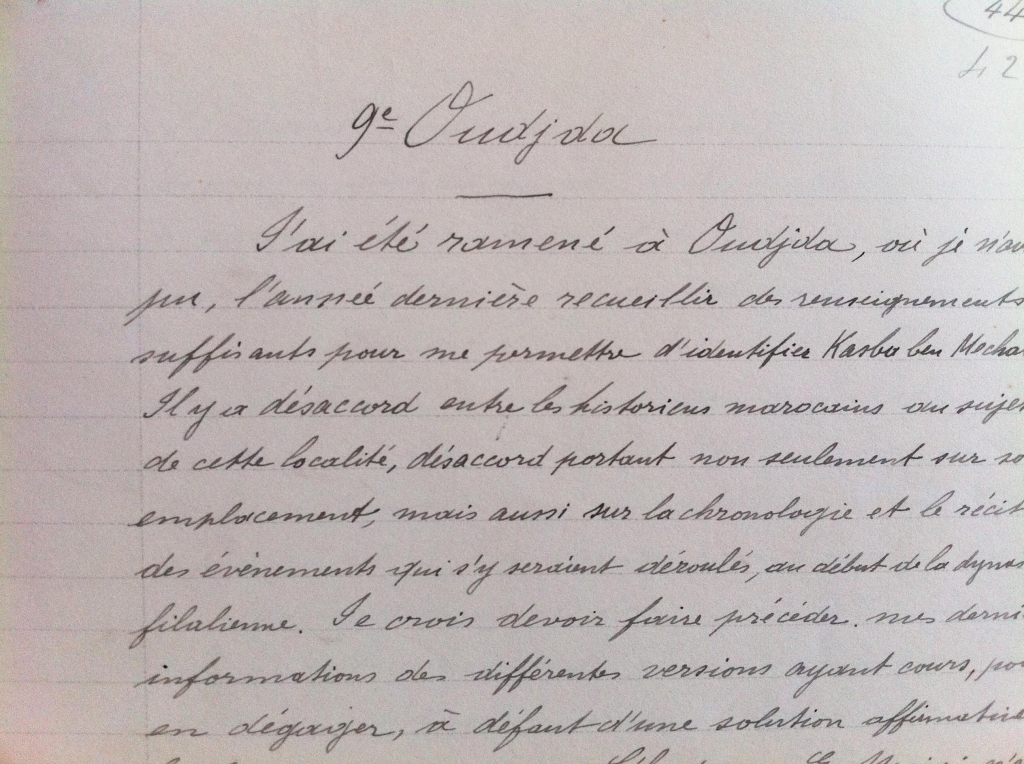 44
42
9e Oudjda
J'ai été ramené à Oudjda, où je n'av
pu, l'année dernière recueillir des renseignements
suffisants pour me permettre d'identifier Kasba ben Mecha
Il y a désaccord entre les historiens marocains au sujet
de cette localité, désaccord portant non seulement sur so
emplacement, mais aussi sur la chronologie et le récit
des évènements qui s'y seraient déroulés, au début de la dynas
filalienne. Je crois devoir faire précéder mes derni
informations des différentes versions ayant cours, pou
en dégager, à défaut d'une solution affirmative